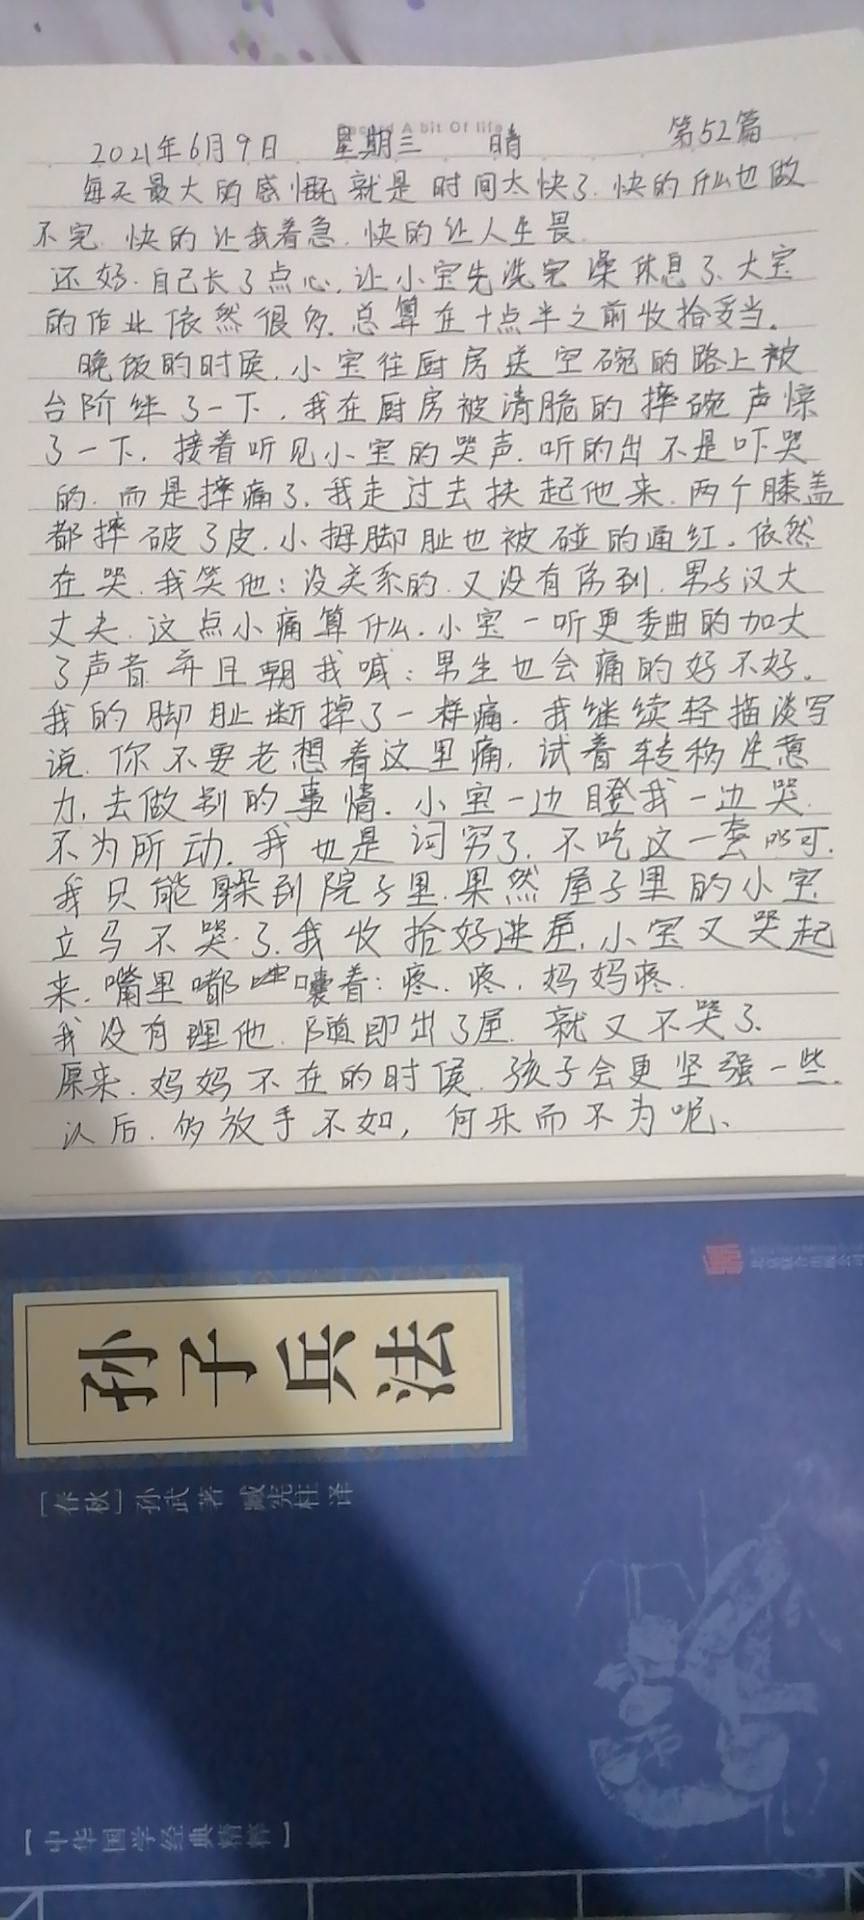 Record A bit Of life
2021年6月9日 星期三 晴 第52篇
每天最大的感慨就是时间太快了.快的什么也做
不完.快的让我着急.快的让人生畏.
还好.自己长了点心.让小宝先洗完澡休息了.大宝
的作业依然很多.总算在十点半之前收拾妥当。
晚饭的时侯.小宝往厨房送空碗的路上被
台阶绊了一下.我在厨房被清脆的摔碗声惊
了一下.接着听见小宝的哭声.听的出不是吓哭
的.而是摔痛了.我走过去扶起他来.两个膝盖
都摔破了皮.小拇脚趾也被碰的通红。依然
在哭.我笑他:没关系的.又没有伤到.男子汉大
丈夫.这点小痛算什么.小宝一听更委曲的加大
了声音并且朝我喊:男生也会痛的好不好。
我的脚趾断掉了一样痛.我继续轻描淡写
说.你不要老想着这里痛,试着转移注意
力,去做别的事情.小宝一边瞪我一边哭.
不为所动.我也是词穷了.不吃这一套
我只能躲到院子里.果然屋子里的小宝
立马不哭了.我收拾好进屋.小宝又哭起
来.嘴里嘟囔着:疼.疼.妈妈疼.
我没有理他.随即出了屋.就又不哭了.
原来.妈妈不在的时侯.孩子会更坚强一些.
以后.多放手不如,何乐而不为呢、
孙子兵法
[春秋]孙武著 臧宪柱译
【中华国学经典精粹】